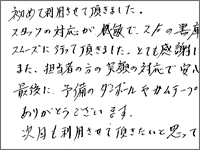 初めて利用させて頂きました。
スタッフの対応が機敏で、スノボの書庫
スムーズに行って頂きました。とても感謝し
また、担当者の方の笑顔の対応で安心
最後に、予備のダンボールやガムテープ
ありがとうございます。
次回も利用させて頂きたいと思って